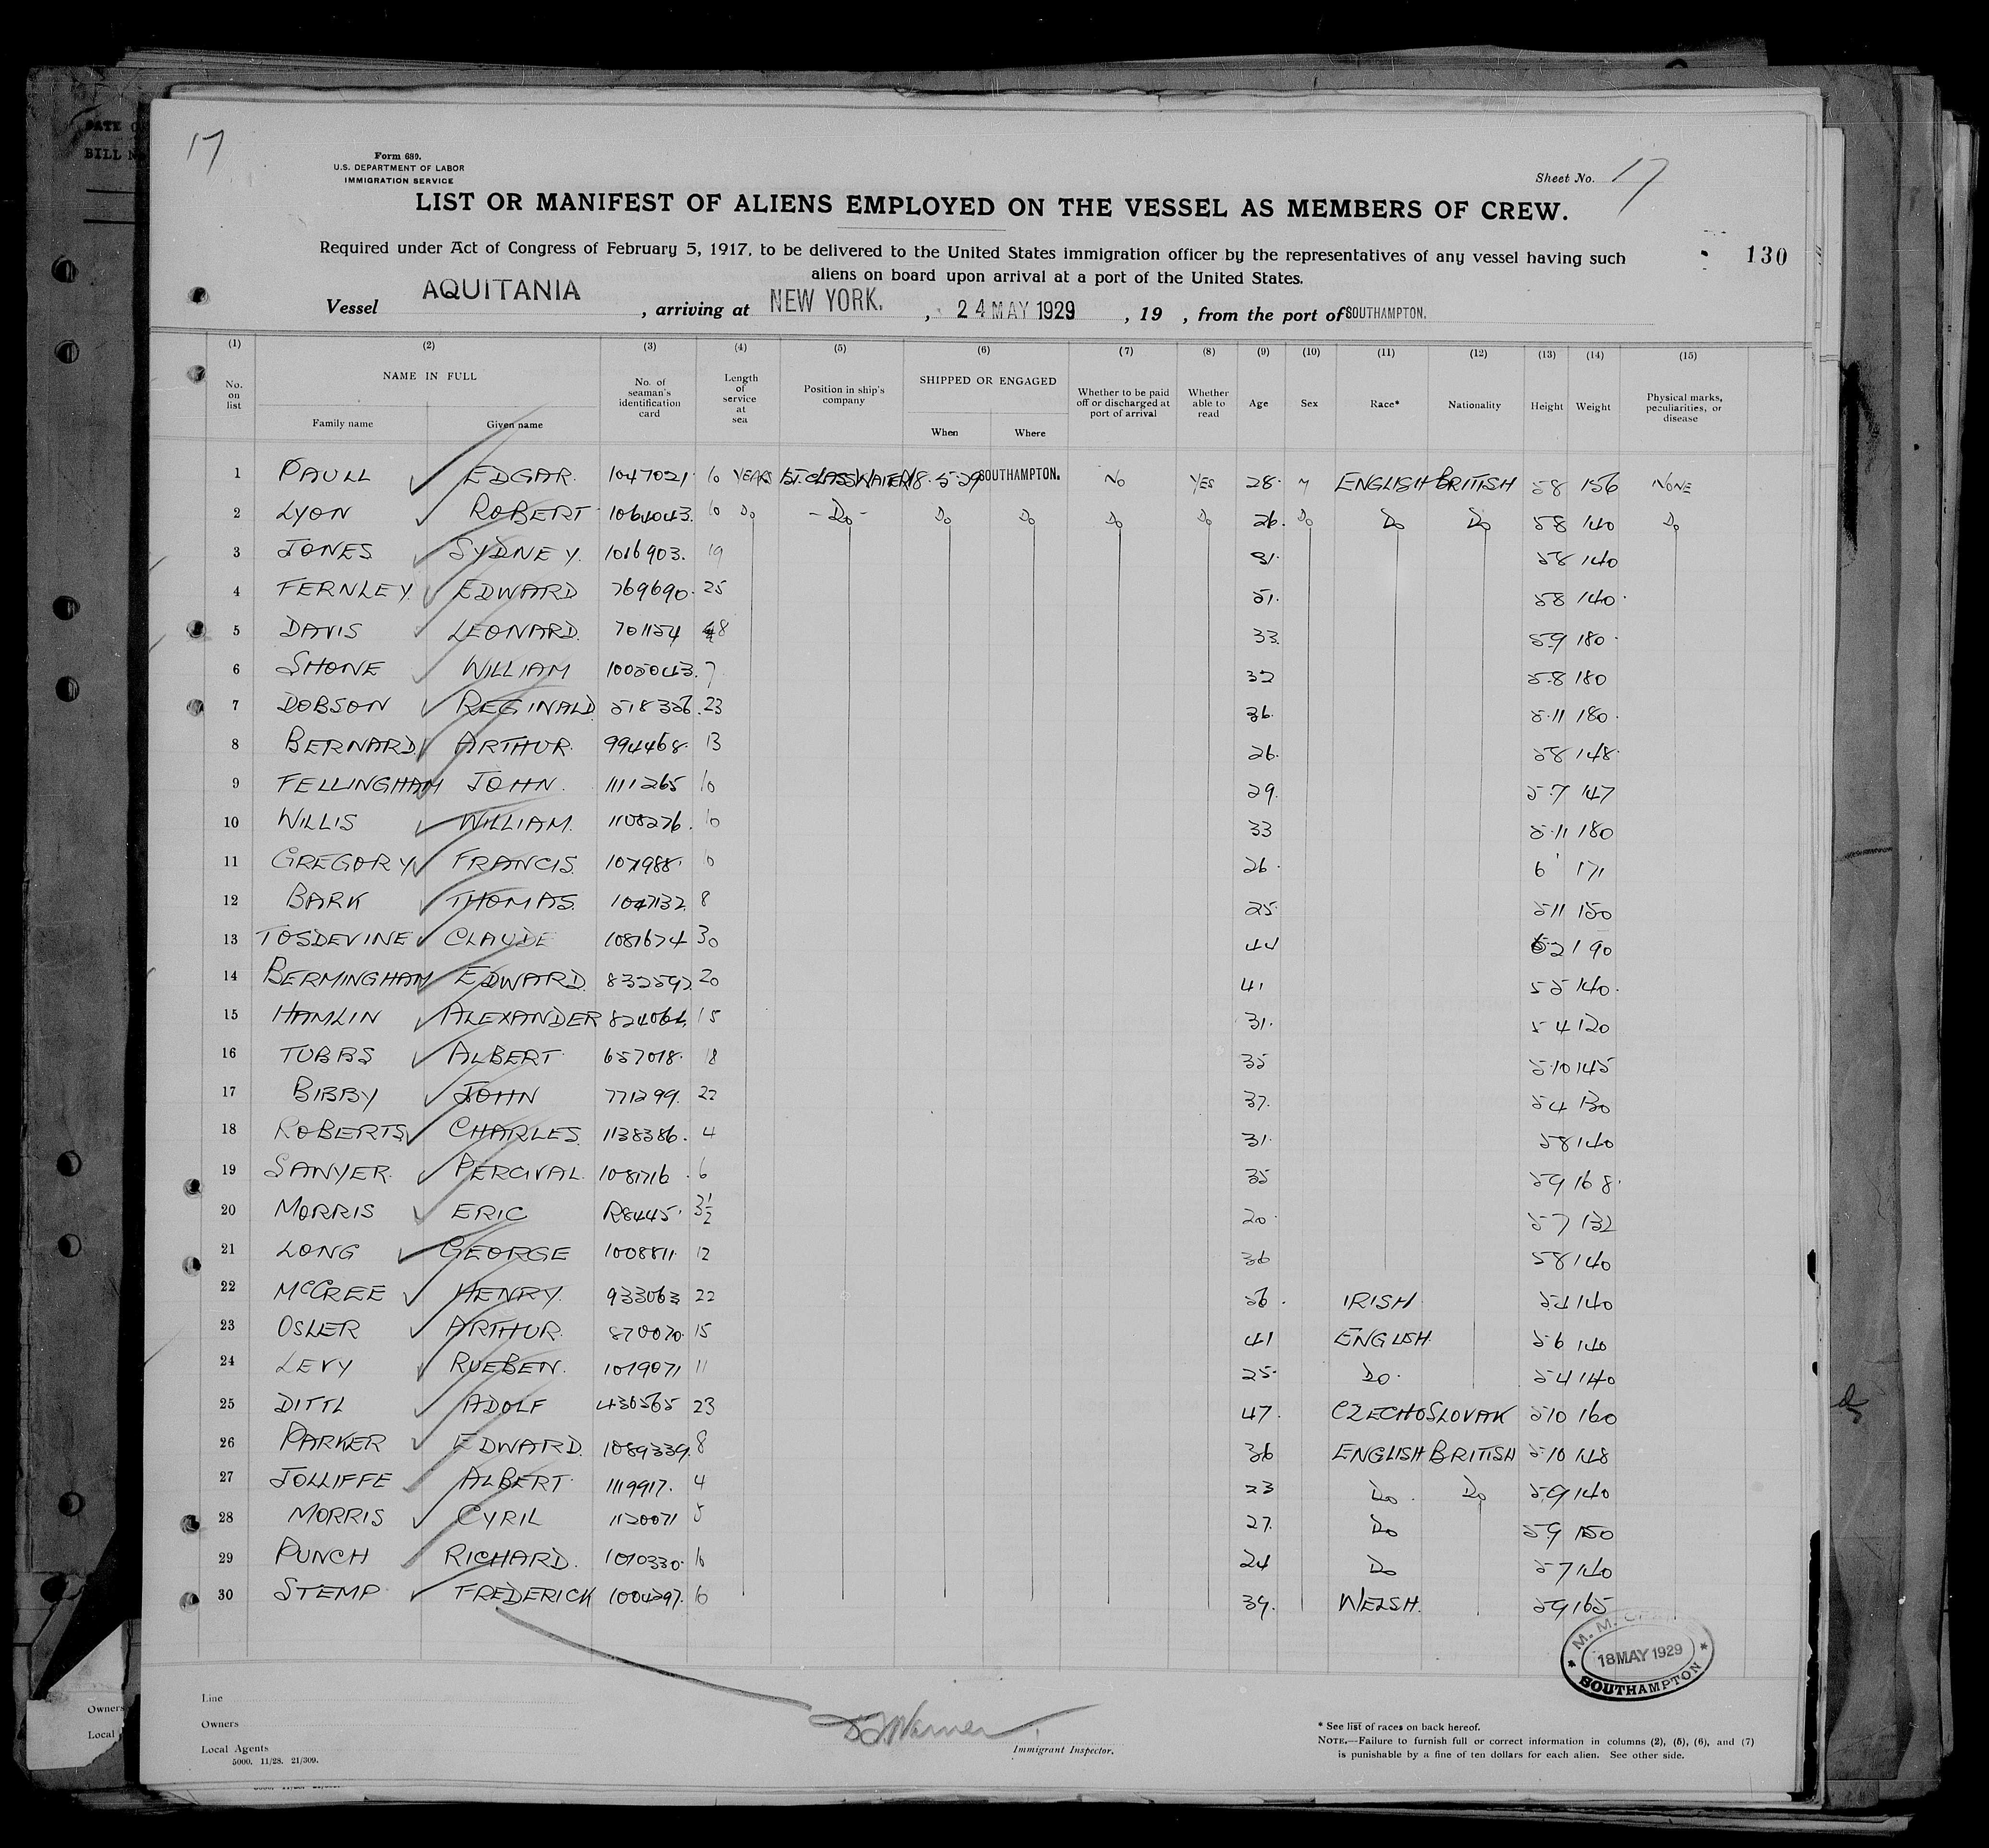 DATE O
BILL N
17
Form 680.
U.S. DEPARTMENT OF LABOR
IMMIGRATION SERVICE
Sheet No. 17
LIST OR MANIFEST OF ALIENS EMPLOYED ON THE VESSEL AS MEMBERS OF CREW.
Required under Act of Congress of February 5, 1917, to be delivered to the United States immigration officer by the representatives of any vessel having such
aliens on board upon arrival at a port of the United States.
130
Vessel AQUITANIA, arriving at NEW YORK., 24 MAY 1929, 19 , from the port of SOUTHAMPTON.
(1) (2) (3) (4) (5) (6) (7) (8) (9) (10) (11) (12) (13) (14) (15)
No. on list NAME IN FULL Family name Given name No. of seaman's identification card Length of service at sea Position in ship's company SHIPPED OR ENGAGED When Where Whether to be paid off or discharged at port of arrival Whether able to read Age Sex Race* Nationality Height Weight Physical marks, peculiarities, or disease
1 PAULL EDGAR. 1047021. 10 YEARS 1ST. CLASS WAITER 18.5.29 SOUTHAMPTON. NO YES 28. M ENGLISH BRITISH 58 156 NONE
2 LYON ROBERT 1064043. 10 Do - Do - Do Do Do Do 26. Do Do Do 58 140 Do
3 JONES SYDNEY. 1016903. 19 31. 58 140
4 FERNLEY. EDWARD 769690. 25 51. 58 140.
5 DAVIS LEONARD. 701154 8 33. 59 180.
6 SHONE WILLIAM 1005043. 7 32 5.8 180
7 DOBSON REGINALD 518356. 23 36. 5.11 180.
8 BERNARD ARTHUR. 994468. 13 26. 58 148.
9 FELLINGHAM JOHN. 1111265 10 29. 5.7 147
10 WILLIS WILLIAM. 1108276. 10 33 5.11 180
11 GREGORY FRANCIS. 107988. 10 26. 6' 171
12 BARK THOMAS. 1047132. 8 25. 511 150
13 TOSDEVINE CLAUDE 1081674 30 44 190
14 BERMINGHAM EDWARD. 832592 20 41 55 140.
15 HAMLIN ALEXANDER 15 31. 5 4 120
16 TUBBS ALBERT. 657018. 18 35 5.10 145
17 BIBBY JOHN 771299. 22 37. 54 130
18 ROBERTS CHARLES. 1138386. 4 31. 58 140
19 SANYER. PERCIVAL. 1081716. 6 35 59 168.
20 MORRIS ERIC R8445. 3½ 20. 57 132
21 LONG GEORGE 1008811. 12 36 58 140
22 McCREE HENRY. 933063 22 56. IRISH. 54 140
23 OSLER ARTHUR. 870070. 15 41 ENGLISH. 56 140
24 LEVY RUEBEN. 1079071 11 25. Do. 54 140
25 DITTL ADOLF 430565 23 47. CZECHOSLOVAK 510 160
26 PARKER EDWARD. 1089339. 8 36 ENGLISH BRITISH 5.10 148
27 JOLLIFFE ALBERT. 1119917. 4 23 Do. Do 5.9 140
28 MORRIS CYRIL 1120071 5 27. Do 5.9 150
29 PUNCH RICHARD. 1010330. 24 Do 57 140
30 STEMP FREDERICK 1004297. 39. WELSH. 59 165
18 MAY 1929
SOUTHAMPTON
Line
Owners
Local Agents
5000. 11/28. 21/309.
Immigrant Inspector.
* See list of races on back hereof.
NOTE.—Failure to furnish full or correct information in columns (2), (5), (6), and (7)
is punishable by a fine of ten dollars for each alien. See other side.
Owners
Local